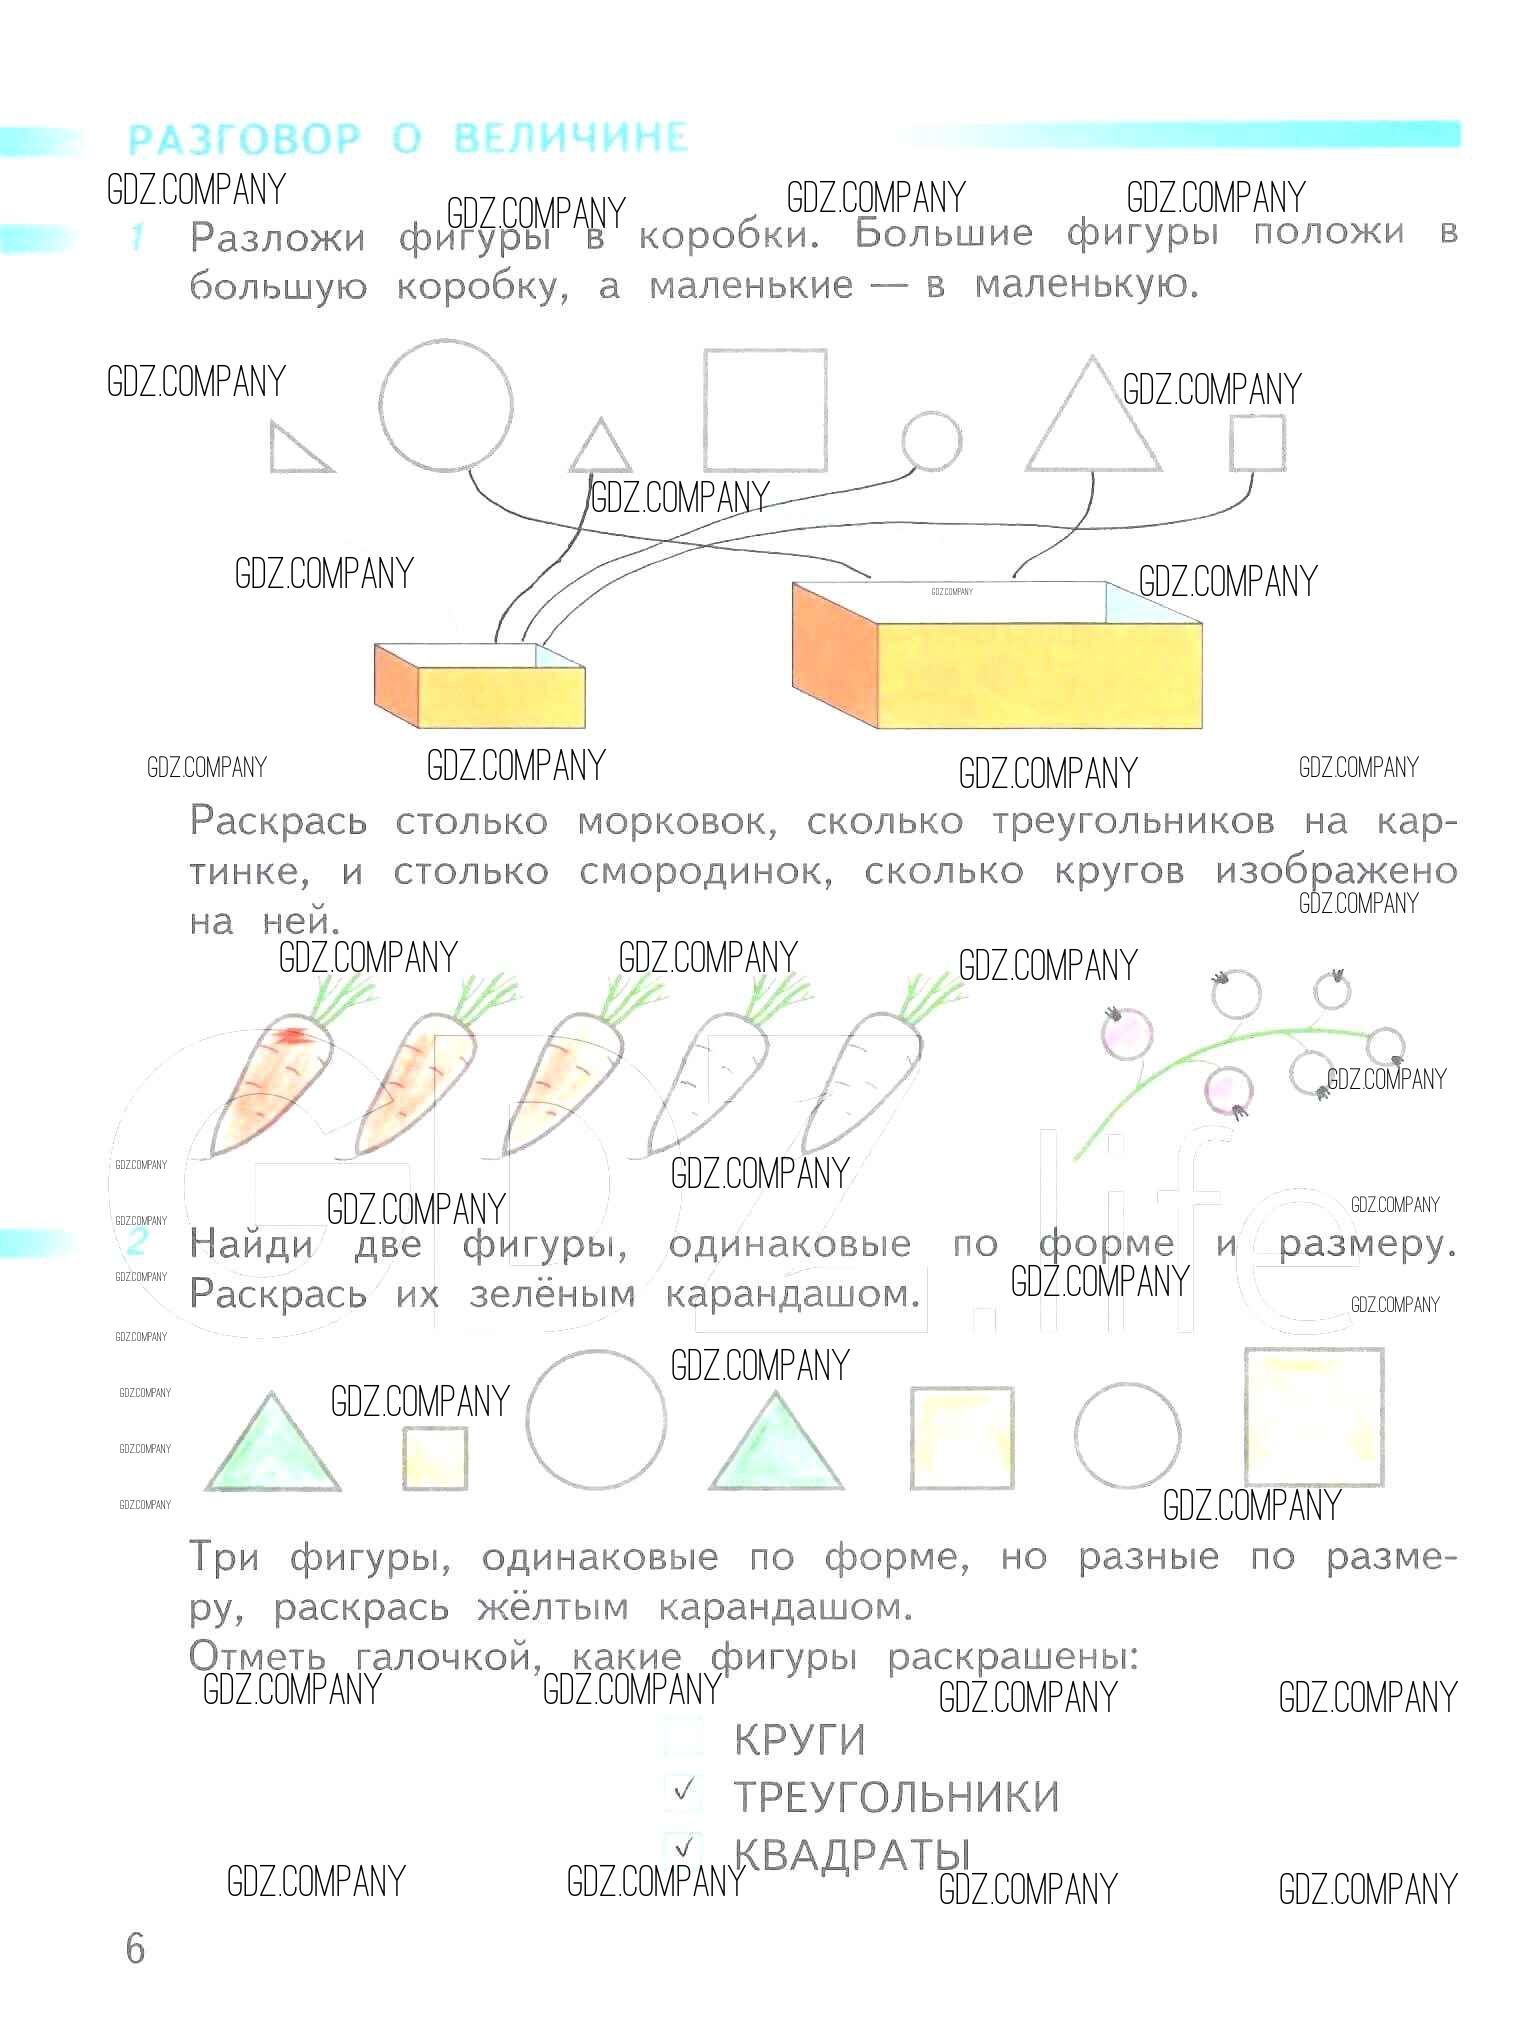 РАЗГОВОР О ВЕЛИЧИНЕ
GDZ.COMPANY GDZ.COMPANY GDZ.COMPANY GDZ.COMPANY
1 Разложи фигуры в коробки. Большие фигуры положи в
большую коробку, а маленькие — в маленькую.
GDZ.COMPANY GDZ.COMPANY
GDZ.COMPANY
GDZ.COMPANY GDZ.COMPANY GDZ.COMPANY
GDZ.COMPANY GDZ.COMPANY GDZ.COMPANY GDZ.COMPANY
Раскрась столько морковок, сколько треугольников на кар-
тинке, и столько смородинок, сколько кругов изображено
на ней.
GDZ.COMPANY
GDZ.COMPANY GDZ.COMPANY GDZ.COMPANY
GDZ.COMPANY
GDZ.life
GDZ.COMPANY GDZ.COMPANY
GDZ.COMPANY GDZ.COMPANY GDZ.COMPANY
2 Найди две фигуры, одинаковые по форме и размеру.
Раскрась их зелёным карандашом.
GDZ.COMPANY GDZ.COMPANY GDZ.COMPANY
GDZ.COMPANY GDZ.COMPANY
GDZ.COMPANY GDZ.COMPANY
GDZ.COMPANY
GDZ.COMPANY GDZ.COMPANY
Три фигуры, одинаковые по форме, но разные по разме-
ру, раскрась жёлтым карандашом.
Отметь галочкой, какие фигуры раскрашены:
GDZ.COMPANY GDZ.COMPANY GDZ.COMPANY GDZ.COMPANY
КРУГИ
✓ ТРЕУГОЛЬНИКИ
✓ КВАДРАТЫ
GDZ.COMPANY GDZ.COMPANY GDZ.COMPANY GDZ.COMPANY
6